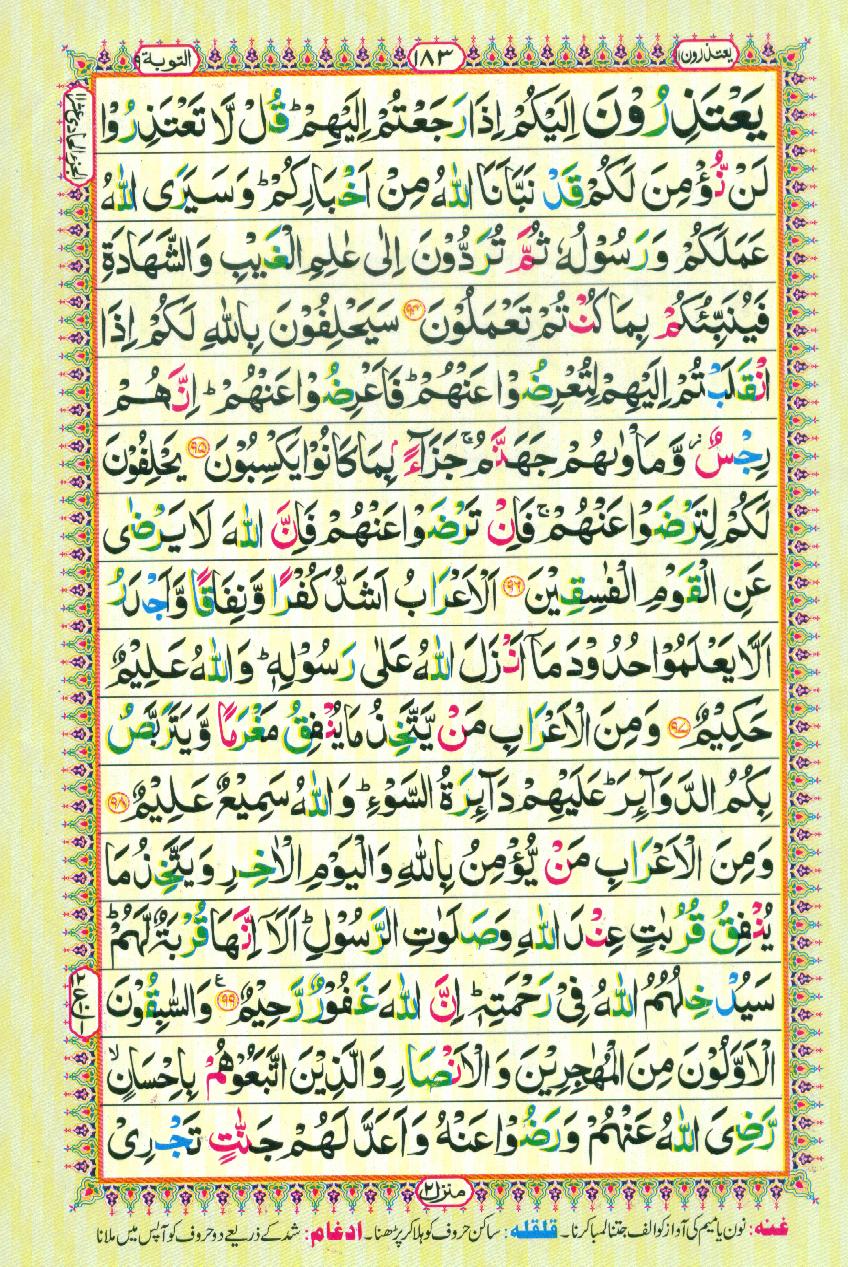 یعتذرون ۱۱
۱۸۳
التوبة ۹
یَعْتَذِرُوْنَ اِلَیْكُمْ اِذَا رَجَعْتُمْ اِلَیْهِمْ ؕ قُلْ لَّا تَعْتَذِرُوْا
لَنْ نُّؤْمِنَ لَكُمْ قَدْ نَبَّاَنَا اللّٰهُ مِنْ اَخْبَارِكُمْ ؕ وَ سَیَرَی اللّٰهُ
عَمَلَكُمْ وَ رَسُوْلُهٗ ثُمَّ تُرَدُّوْنَ اِلٰی عٰلِمِ الْغَیْبِ وَ الشَّهَادَةِ
فَیُنَبِّئُكُمْ بِمَا كُنْتُمْ تَعْمَلُوْنَ ﴿۹۴﴾ سَیَحْلِفُوْنَ بِاللّٰهِ لَكُمْ اِذَا
انْقَلَبْتُمْ اِلَیْهِمْ لِتُعْرِضُوْا عَنْهُمْ ؕ فَاَعْرِضُوْا عَنْهُمْ ؕ اِنَّهُمْ
رِجْسٌ ۫ وَّ مَاْوٰىهُمْ جَهَنَّمُ ۚ جَزَآءًۢ بِمَا كَانُوْا یَكْسِبُوْنَ ﴿۹۵﴾ یَحْلِفُوْنَ
لَكُمْ لِتَرْضَوْا عَنْهُمْ ۚ فَاِنْ تَرْضَوْا عَنْهُمْ فَاِنَّ اللّٰهَ لَا یَرْضٰی
عَنِ الْقَوْمِ الْفٰسِقِیْنَ ﴿۹۶﴾ اَلْاَعْرَابُ اَشَدُّ كُفْرًا وَّ نِفَاقًا وَّ اَجْدَرُ
اَلَّا یَعْلَمُوْا حُدُوْدَ مَاۤ اَنْزَلَ اللّٰهُ عَلٰی رَسُوْلِهٖ ؕ وَ اللّٰهُ عَلِیْمٌ
حَكِیْمٌ ﴿۹۷﴾ وَ مِنَ الْاَعْرَابِ مَنْ یَّتَّخِذُ مَا یُنْفِقُ مَغْرَمًا وَّ یَتَرَبَّصُ
بِكُمُ الدَّوَآئِرَ ؕ عَلَیْهِمْ دَآئِرَةُ السَّوْءِ ؕ وَ اللّٰهُ سَمِیْعٌ عَلِیْمٌ ﴿۹۸﴾
وَ مِنَ الْاَعْرَابِ مَنْ یُّؤْمِنُ بِاللّٰهِ وَ الْیَوْمِ الْاٰخِرِ وَ یَتَّخِذُ مَا
یُنْفِقُ قُرُبٰتٍ عِنْدَ اللّٰهِ وَ صَلَوٰتِ الرَّسُوْلِ ؕ اَلَاۤ اِنَّهَا قُرْبَةٌ لَّهُمْ ؕ
سَیُدْخِلُهُمُ اللّٰهُ فِیْ رَحْمَتِهٖ ؕ اِنَّ اللّٰهَ غَفُوْرٌ رَّحِیْمٌ ﴿۹۹﴾ ع وَ السّٰبِقُوْنَ
الْاَوَّلُوْنَ مِنَ الْمُهٰجِرِیْنَ وَ الْاَنْصَارِ وَ الَّذِیْنَ اتَّبَعُوْهُمْ بِاِحْسَانٍ ۙ
رَّضِیَ اللّٰهُ عَنْهُمْ وَ رَضُوْا عَنْهُ وَ اَعَدَّ لَهُمْ جَنّٰتٍ تَجْرِیْ
منزل ۲
غنہ: نون یا میم کی آواز کو الف جتنا لمبا کرنا۔ قلقلہ: ساکن حروف کو ہلا کر پڑھنا۔ ادغام: شد کے ذریعے دو حروف کو آپس میں ملانا